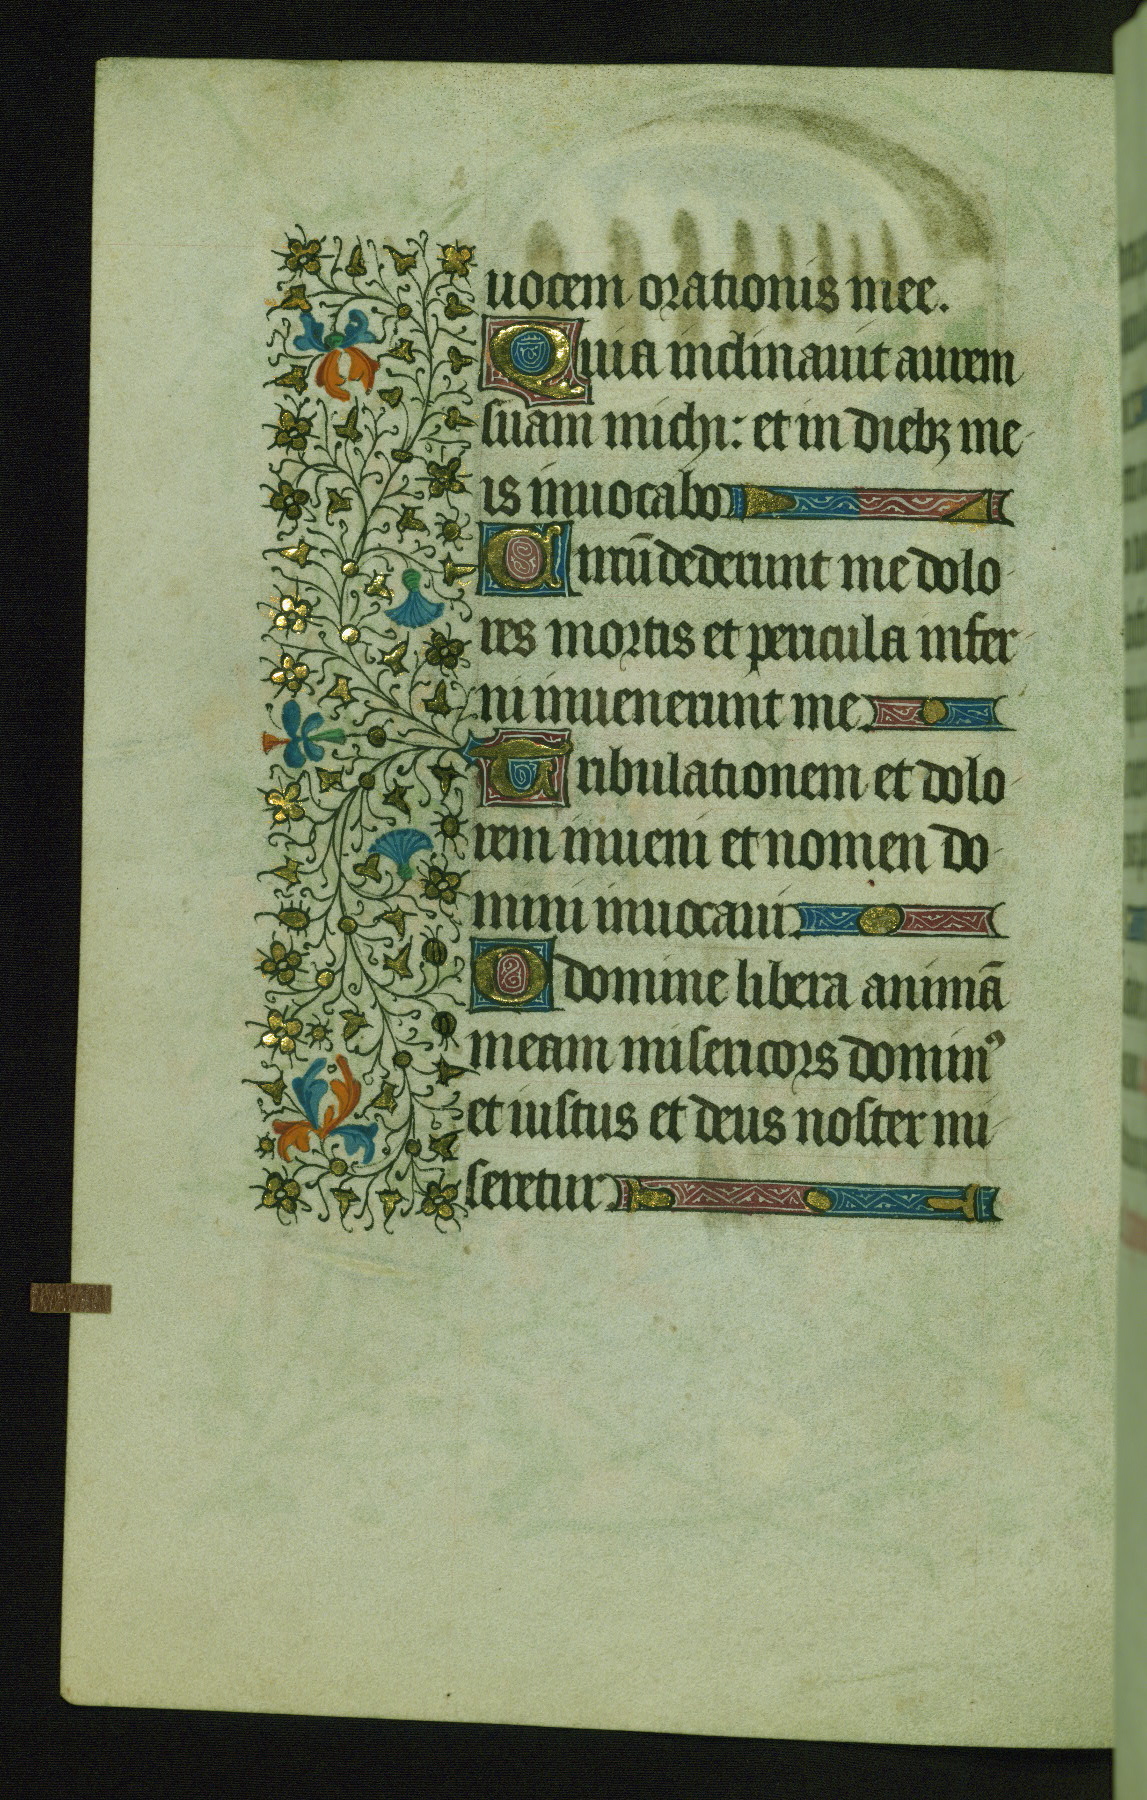 uocem orationis mee.
Quia inclinauit aurem
suam michi: et in diebꝫ me
is inuocabo
Circū dederunt me dolo
res mortis et pericula infer
ni inuenerunt me
Tribulationem et dolo
rem inueni et nomen do
mini inuocaui.
O domine libera animā
meam misericors dominꝰ
et iustus et deus noster mi
seretur